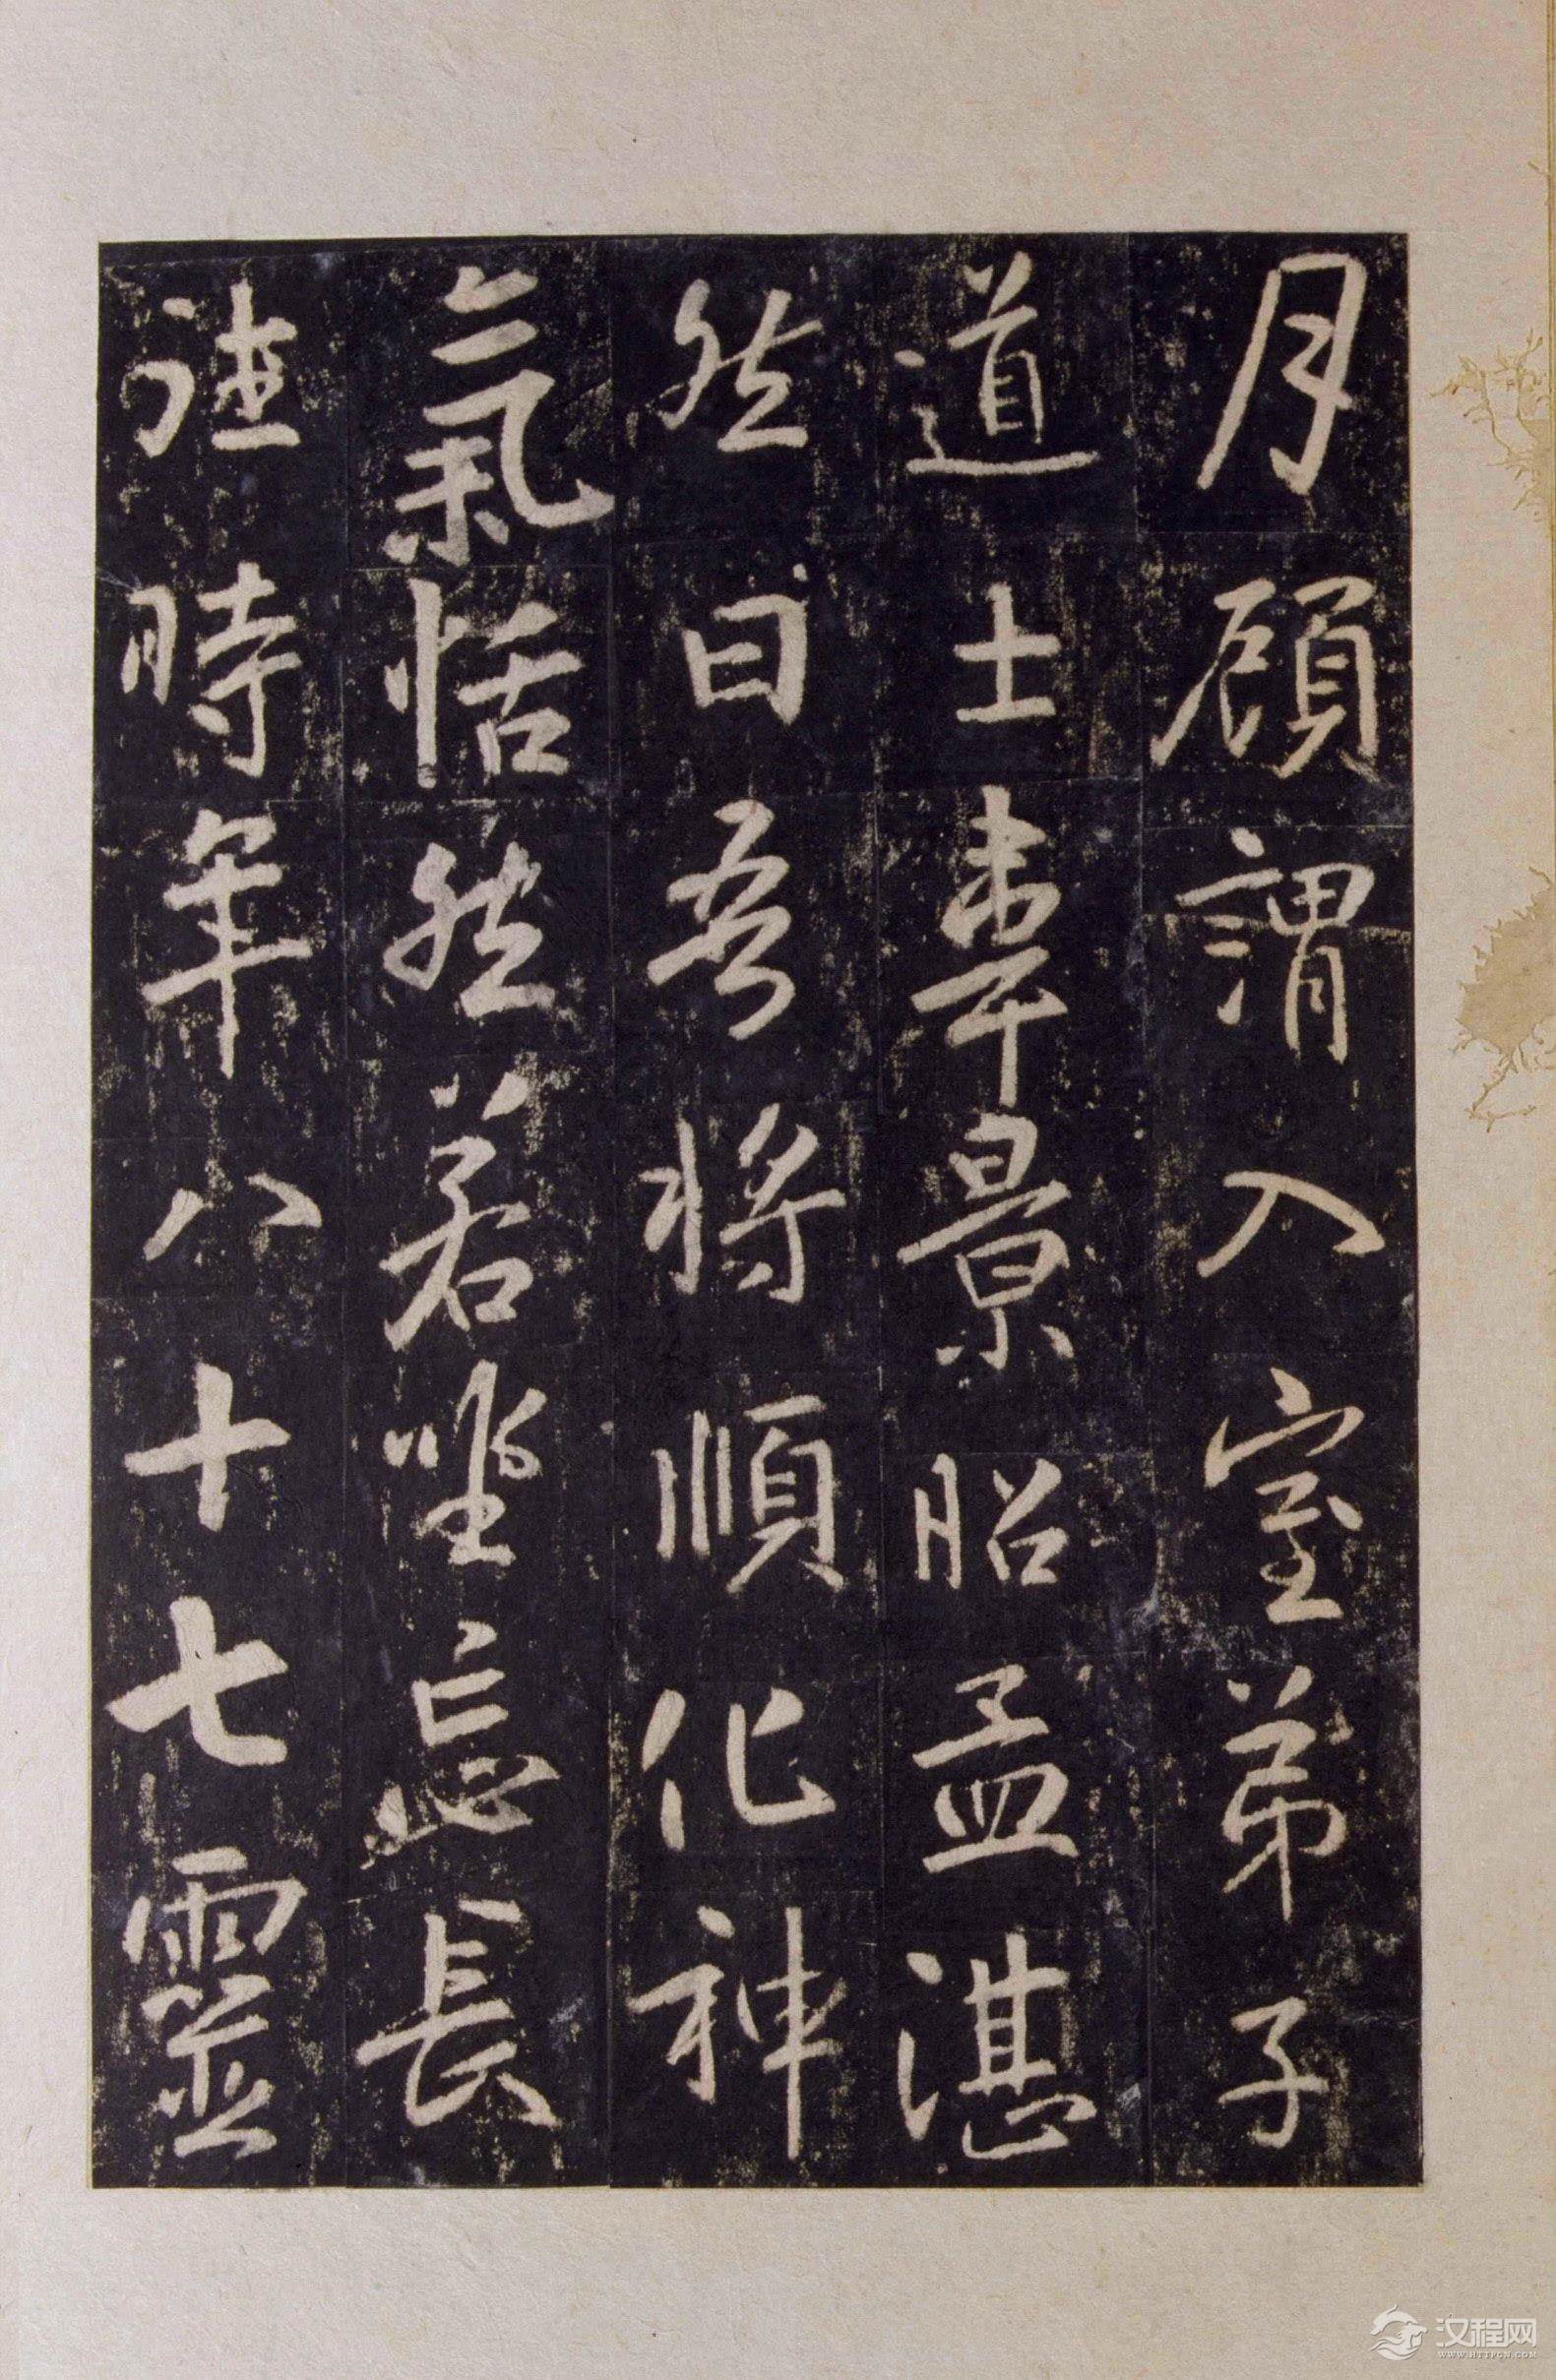 月顧謂入室弟子
道士韋景昭孟湛
然曰吾將順化神
氣恬然若坐忘長
往時年八十七靈
汉程网
WWW.HTTPCN.COM